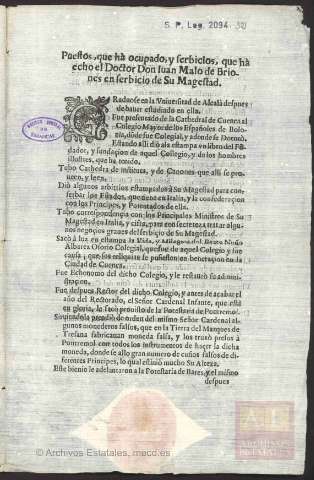 S. P. Leg. 2094
Puestos, que hà ocupado, y serbicios, que hà
echo el Doctor Don Iuan Malo de Brio-
nes en serbicio de Su Magestad.
GRaduose en la Vniuersidad de Alcalà despues
de hauer estudiado en ella.
Fue presentado de la Cathedral de Cuenca al
Colegio Mayor de los Españoles de Bolo-
nia, dõde fue Colegial, y ademàs de Dotorò.
Estando alli diò à la estampa vn libro del Fũ-
dador, y fundacion de aquel Colegio, y de los hombres
illustres, que ha tenido.
Tubo Cathedra de instituta, y de Canones que alli se pro-
ueen, y leen.
Diò algunos arbitrios estampados à Su Magestad para con-
serbar los Estados, que tiene en Italia, y la confederacion
con los Principes, y Potentados de ella.
Tubo correspondencia con los Principales Ministros de Su
Magestad en Italia, y cifra, para con secreto tratar algu-
nos negocios graues del serbicio de Su Magestad.
Sacò à luz en estampa la Vida, y Milagros del Beato Nuño
Albarez Osorio Colegial, que fue de aquel Colegio y fue
causa, que sus reliquias se pusiessen en beneracion en la
Ciudad de Cuenca.
Fue Echonomo del dicho Colegio, y le restaurò su admi-
nistracion.
Fue despues Rector del dicho Colegio, y antes de acabar el
año del Rectorado, el Señor Cardenal Infante, que està
en gloria, le hizò prouisto de la Potestaria de Pontremol.
Siruiendola prendiò de orden del mismo Señor Cardenal al-
gunos monederos falsos, que en la Tierra del Marques de
Tresana fabricauan moneda falsa, y los truxò presos à
Pontremol con todos los instrumentos de hacer la dicha
moneda, donde se allò gran numero de cuños falsos de di-
ferentes Principes, lo qual estimò mucho Su Alteza.
Este bienio le adelantaron à la Potestaria de Bares, y el mismo
despues
ARCHIVOS
ESTATALES
© Archivos Estatales, mecd.es